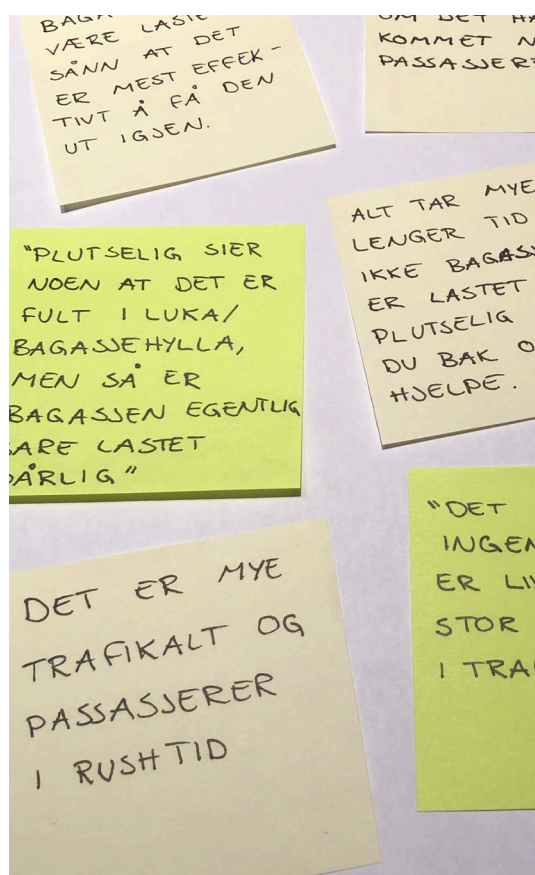 VÆRE LASTE
SÅNN AT DET
ER MEST EFFEK-
TIVT Å FÅ DEN
UT IGJEN.
OM DET HA
KOMMET N
PASSASJERE
"PLUTSELIG SIER
NOEN AT DET ER
FULT I LUKA/
BAGASJEHYLLA,
MEN SÅ ER
BAGASJEN EGENTLIG
BARE LASTET
DÅRLIG"
ALT TAR MYE
LENGER TID
IKKE BAGASJ
ER LASTET
PLUTSELIG
DU BAK O
HJELPE.
DET ER MYE
TRAFIKALT OG
PASSASJERER
I RUSHTID
"DET
INGEN
ER LI
STOR
I TRA